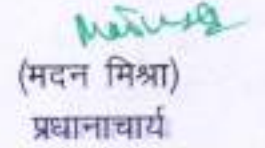 (मदन मिश्रा)
प्रधानाचार्य